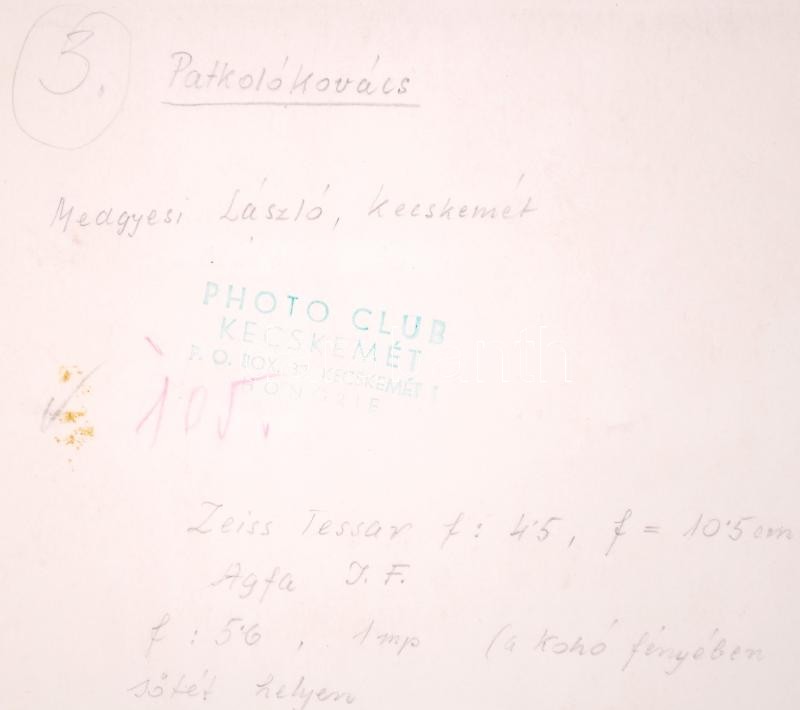 3.
Patkolókovács
Medgyesi László, Kecskemét
PHOTO CLUB
KECSKEMÉT
P. O. BOX. KECSKEMÉT 1
HONGRIE
105.
Zeiss Tessar f: 4'5, f = 10'5 cm
Agfa I. F.
f : 5'6 , 1 mp (a kohó fényében
sötét helyen